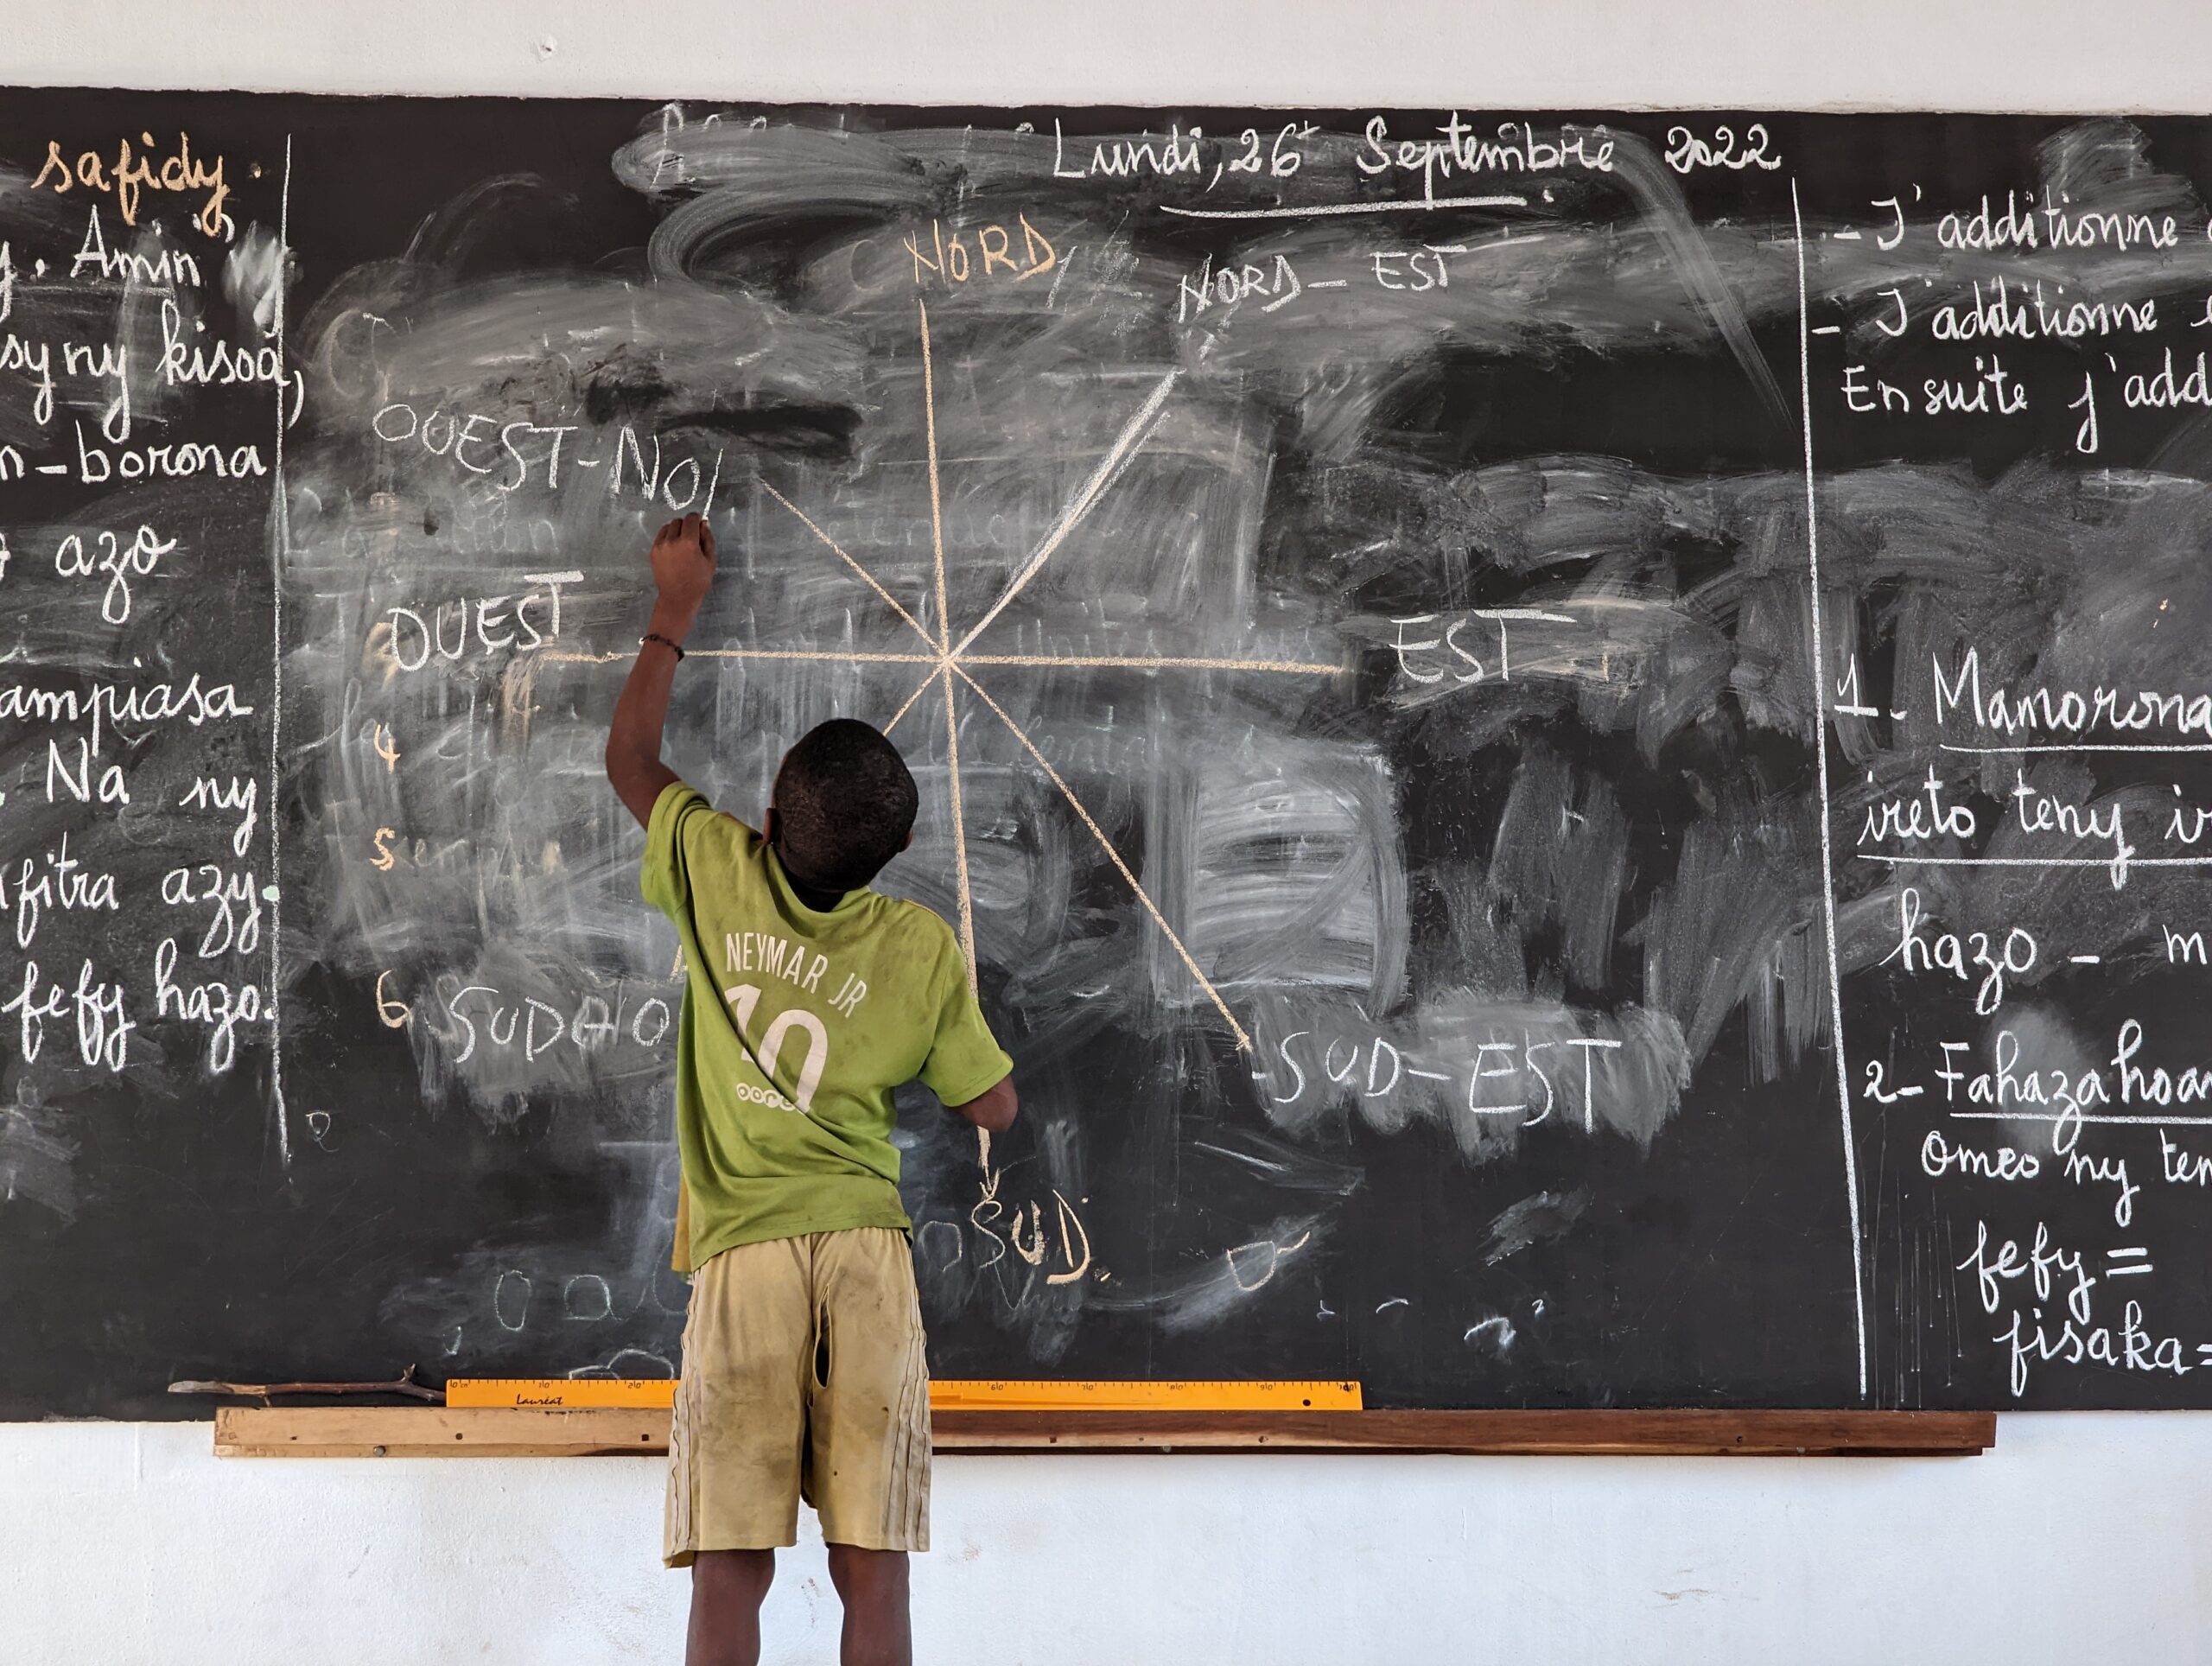 safidy.
Amin'
sy ny kisoa,
n-borona
azo
ampiasa
Na ny
fitra azy.
fefy hazo.
Lundi, 26 Septembre 2022
NORD
NORD-EST
OUEST-NO
OUEST
EST
4
5
6
SUD-O
SUD-EST
SUD.
NEYMAR JR
10
Lauréat
- J'additionne
- J'additionne
Ensuite j'add
1- Mamorona
ireto teny ir
hazo - m
2- Fahazahoa
omeo ny ten
fefy =
fisaka =